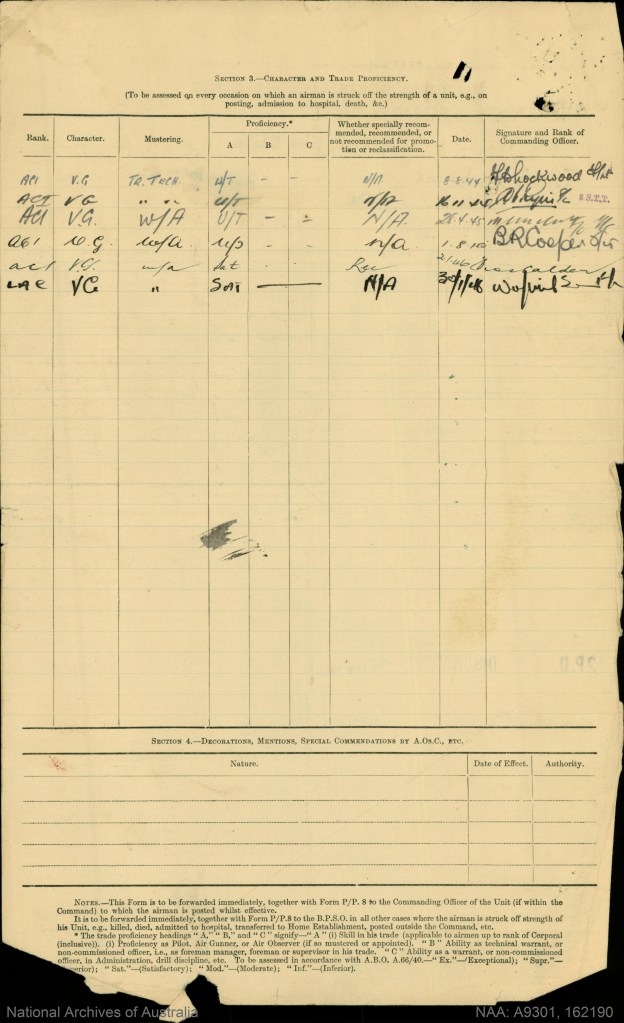 SECTION 3.—CHARACTER AND TRADE PROFICIENCY.
(To be assessed on every occasion on which an airman is struck off the strength of a unit, e.g., on
posting, admission to hospital, death, &c.)
Rank. Character. Mustering. Proficiency.* A B C Whether specially recommended, recommended, or not recommended for promotion or reclassification. Date. Signature and Rank of Commanding Officer.
AC1 V.G TR. TECH. U/T - - N/A 8-8-44
AC1 VG " " U/T N/A 16 11 44
AC1 V.G. W/A U/T - = N/A. 28.4.45
AC1 V.G W/A. - - N/A 1-8 BR Cooper
AC1 V.G. W/A Sat Rec 2/1/46
LAC VG " SAT N/A 30/1/46
SECTION 4.—DECORATIONS, MENTIONS, SPECIAL COMMENDATIONS BY A.OS.C., ETC.
Nature. Date of Effect. Authority.
NOTES.—This Form is to be forwarded immediately, together with Form P/P. 8 to the Commanding Officer of the Unit (if within the
Command) to which the airman is posted whilst effective.
It is to be forwarded immediately, together with Form P/P.8 to the B.P.S.O. in all other cases where the airman is struck off strength of
his Unit, e.g., killed, died, admitted to hospital, transferred to Home Establishment, posted outside the Command, etc.
* The trade proficiency headings "A," "B," and "C" signify—"A" (i) Skill in his trade (applicable to airmen up to rank of Corporal
(inclusive)). (i) Proficiency as Pilot, Air Gunner, or Air Observer (if so mustered or appointed). "B" Ability as technical warrant, or
non-commissioned officer, i.e., as foreman manager, foreman or supervisor in his trade. "C" Ability as a warrant, or non-commissioned
officer, in Administration, drill discipline, etc. To be assessed in accordance with A.B.O. A.66/40.—"Ex."—(Exceptional); "Supr."—
perior); "Sat."—(Satisfactory); "Mod."—(Moderate); "Inf."—(Inferior).
National Archives of Australia NAA: A9301, 162190